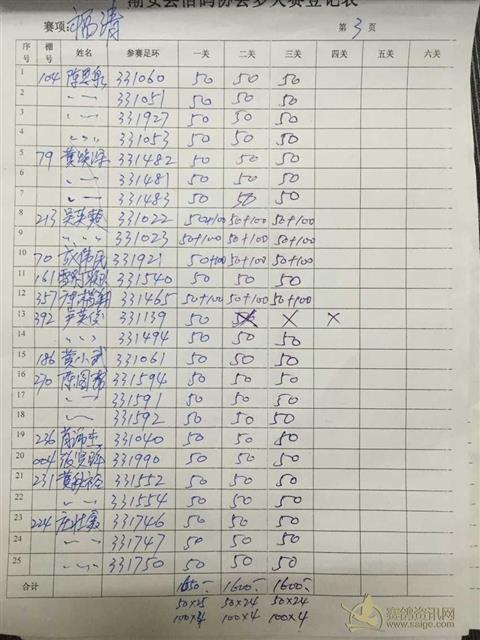 潮安县信鸽协会多关赛登记表
赛项: 福清 第 3 页
序号 棚号 姓名 参赛足环 一关 二关 三关 四关 五关 六关
1 104 331060 50 50 50
2 331051 50 50 50
3 331927 50 50 50
4 331053 50 50 50
5 79 331482 50 50 50
6 331481 50 50 50
7 331483 50 50 50
8 213 331022 50+100 50+100 50+100
9 331023 50+100 50+100 50+100
10 70 331921 50+100 50+100 50+100
11 161 331540 50 50 50
12 357 331465 50+100 50+100 50+100
13 392 尹英俊 331139 50 50 × × ×
14 331494 50 50 50
15 186 黄小武 331061 50 50 50
16 270 331594 50 50 50
17 331591 50 50 50
18 331592 50 50 50
19 236 331040 50 50 50
20 004 331990 50 50 50
21 231 331552 50 50 50
22 331554 50 50 50
23 224 331746 50 50 50
24 331747 50 50 50
25 331750 50 50 50
合计 1650- 1600- 1600-
50×25 50×24 50×24
100×4 100×4 100×4
赛鸽资讯网
www.saige.com